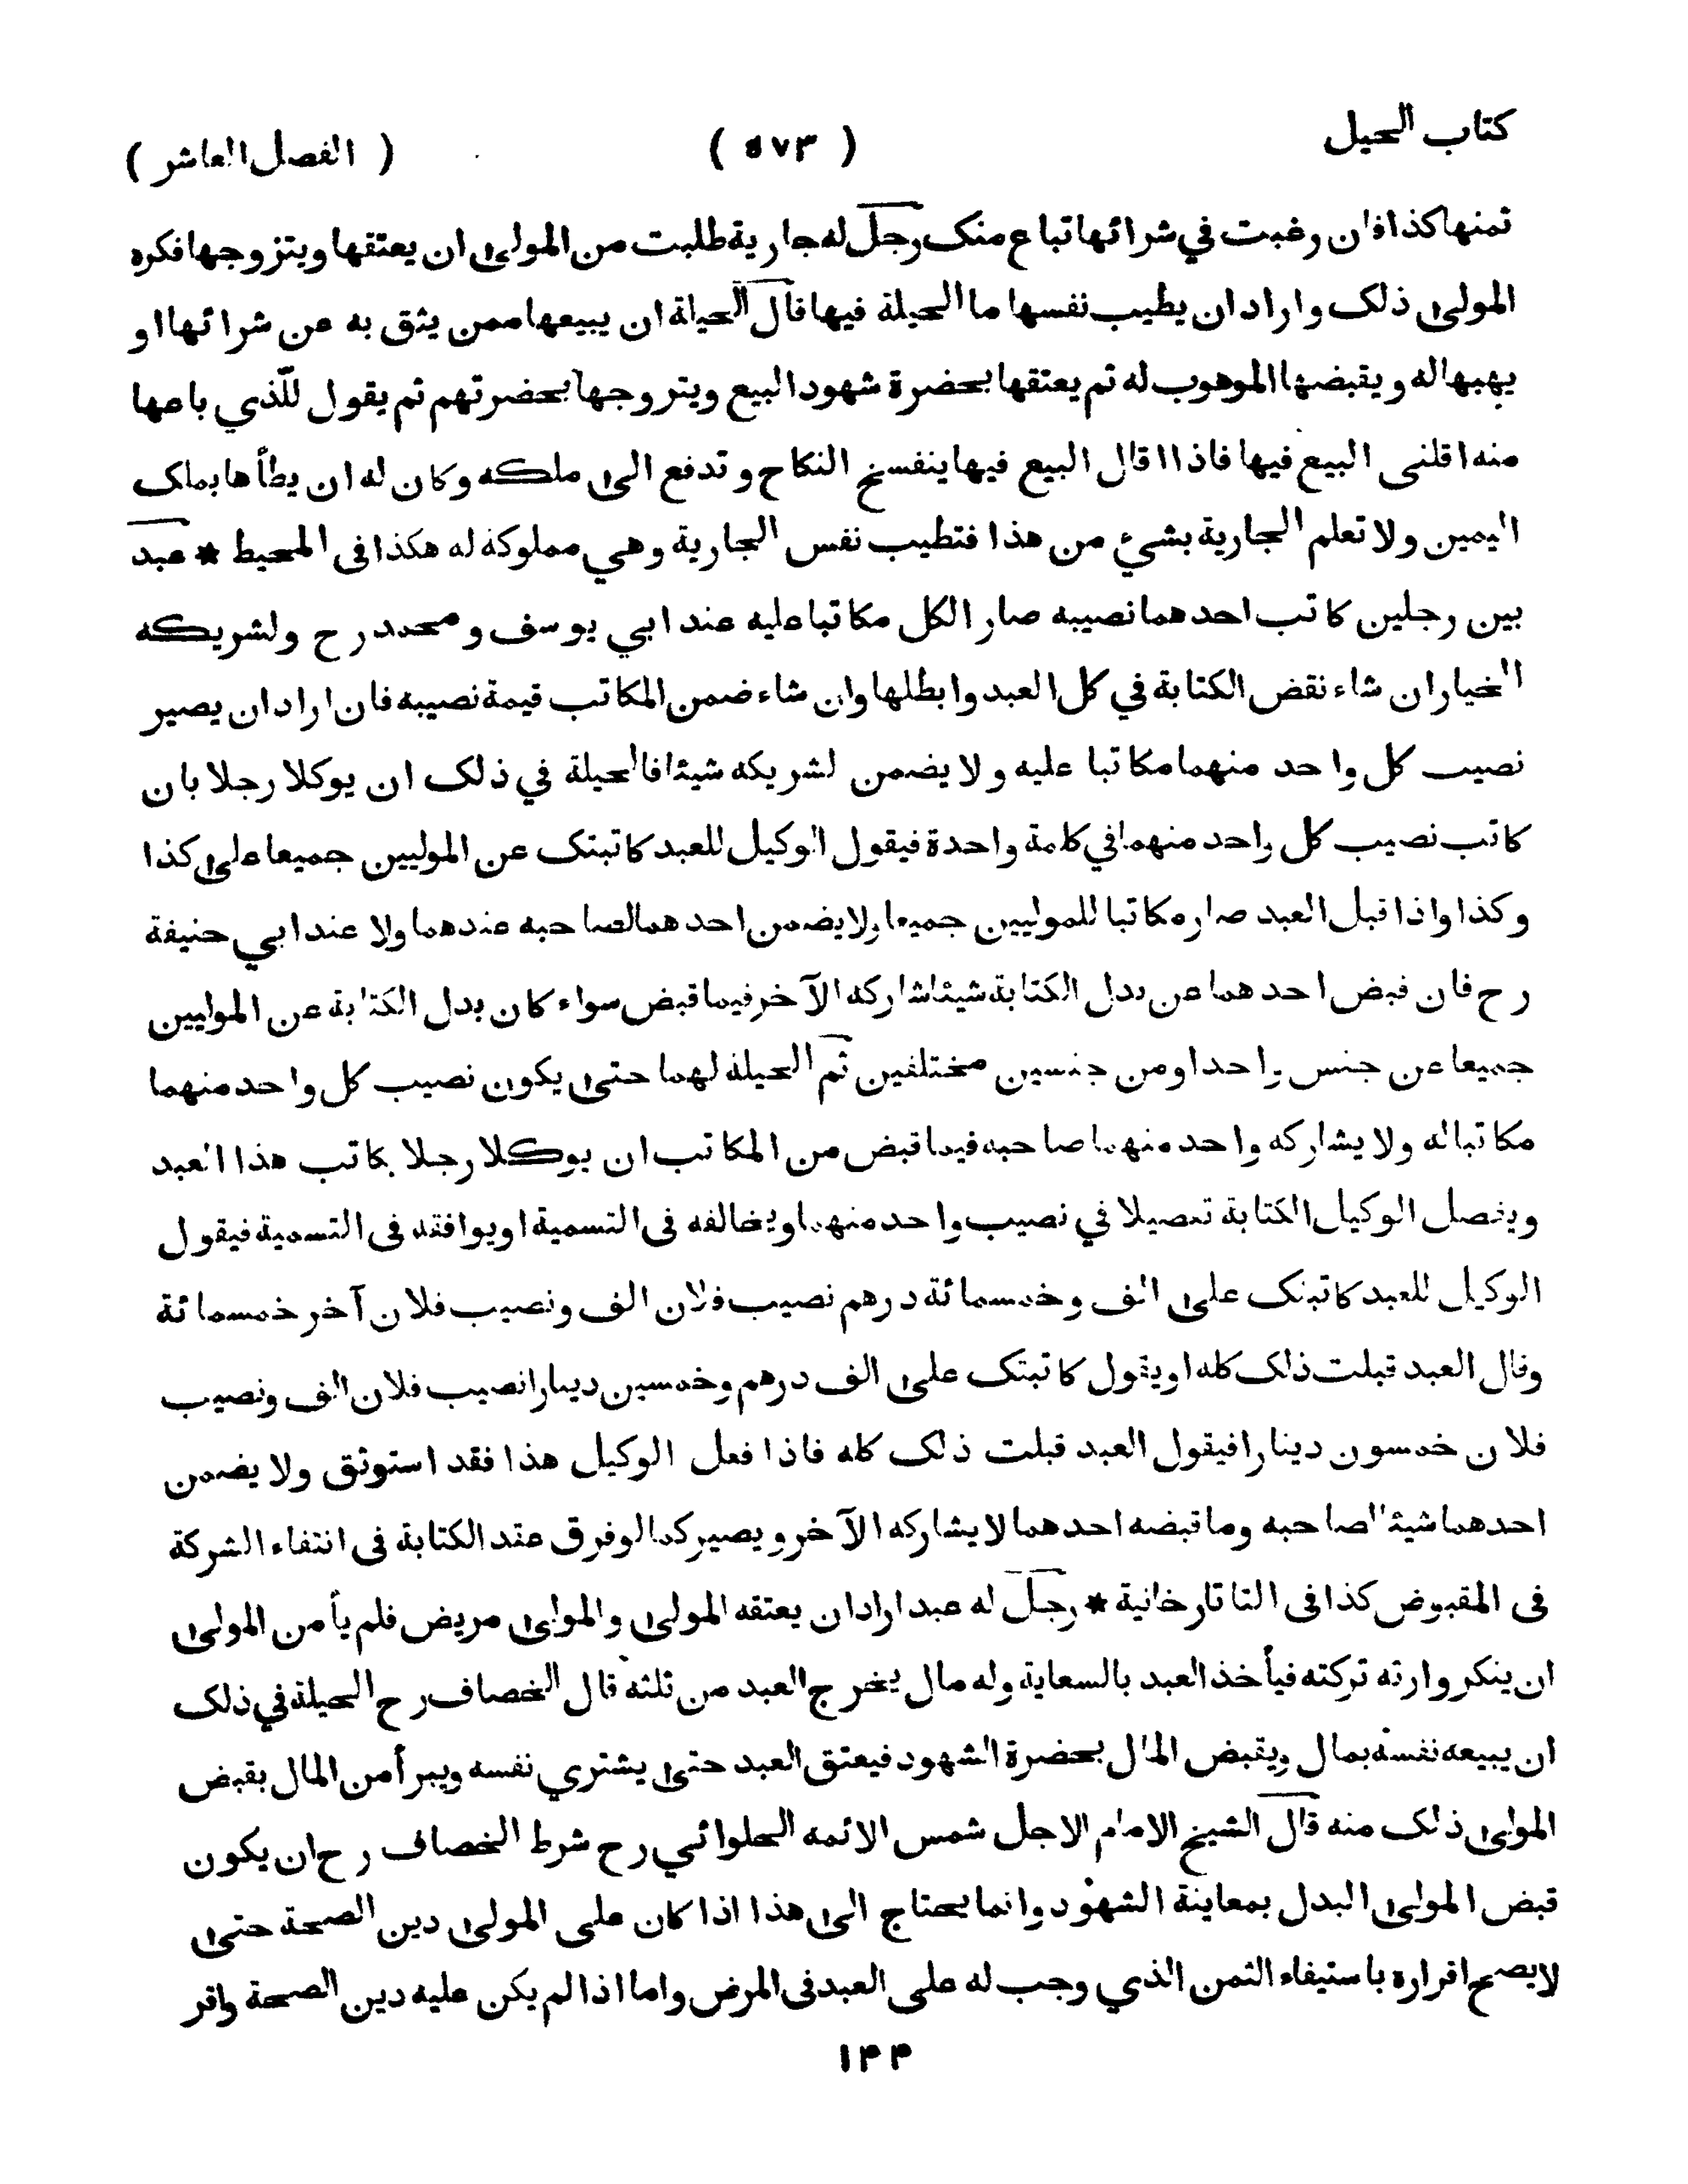 كتاب الحيل ( ٥٧٣ ) ( الفصل العاشر )
ثمنها كذا فان رغبت في شرائها تباع منك رجل له جارية طلبت من المولى ان يعتقها ويتزوجها فكره
المولى ذلك واراد ان يطيب نفسها ما الحيلة فيها قال الحيلة ان يبيعها ممن يثق به عن شرائها او
يهبها له ويقبضها الموهوب له ثم يعتقها بحضرة شهود البيع ويتزوجها بحضرتهم ثم يقول للّذي باعها
منه اقلنى البيع فيها فاذا اقال البيع فيها ينفسخ النكاح و تدفع الى ملكه وكان له ان يطأها بملك
اليمين ولا تعلم الجارية بشيء من هذا فتطيب نفس الجارية وهي مملوكة له هكذا فى المحيط * عبد
بين رجلين كاتب احدهما نصيبه صار الكل مكاتبا عليه عند ابي يوسف و محمد رح ولشريكه
الخيار ان شاء نقض الكتابة في كل العبد وابطلها وان شاء ضمن المكاتب قيمة نصيبه فان اراد ان يصير
نصيب كل واحد منهما مكاتبا عليه ولا يضمن لشريكه شيئا فالحيلة في ذلك ان يوكلا رجلا بان
كاتب نصيب كل واحد منهما في كلمة واحدة فيقول الوكيل للعبد كاتبتك عن الموليين جميعا على كذا
وكذا واذا قبل العبد صار مكاتبا للموليين جميعا ولا يضمن احدهما لصاحبه عندهما ولا عند ابي حنيفة
رح فان قبض احدهما عن بدل الكتابة شيئا شاركه الآخر فيما قبض سواء كان بدل الكتابة عن الموليين
جميعا عن جنس واحد او من جنسين مختلفين ثم الحيلة لهما حتى يكون نصيب كل واحد منهما
مكاتبا له ولا يشاركه واحد منهما صاحبه فيما قبض من المكاتب ان يوكلا رجلا يكاتب هذا العبد
ويفصل الوكيل الكتابة تفصيلا في نصيب واحد منهما ويخالفه فى التسمية او يوافقه فى التسمية فيقول
الوكيل للعبد كاتبتك على الف وخمسمائة درهم نصيب فلان الف ونصيب فلان آخر خمسمائة
وقال العبد قبلت ذلك كله او يقول كاتبتك على الف درهم وخمسين دينارا نصيب فلان الف ونصيب
فلان خمسون دينارا فيقول العبد قبلت ذلك كله فاذا فعل الوكيل هذا فقد استوثق ولا يضمن
احدهما شيئا لصاحبه وما قبضه احدهما لا يشاركه الآخر ويصير كما لو فرق عقد الكتابة فى انتفاء الشركة
فى المقبوض كذا فى التاتارخانية * رجل له عبد اراد ان يعتقه المولى والمولى مريض فلم يأمن المولى
ان ينكر وارثه تركته فيأخذ العبد بالسعاية وله مال يخرج العبد من ثلثه قال الخصاف رح الحيلة في ذلك
ان يبيعه نفسه بمال ويقبض المال بحضرة الشهود فيعتق العبد حتى يشتري نفسه ويبرأ من المال بقبض
المولى ذلك منه قال الشيخ الامام الاجل شمس الائمه الحلوائي رح شرط الخصاف رح ان يكون
قبض المولى البدل بمعاينة الشهود وانما يحتاج الى هذا اذا كان على المولى دين الصحة حتى
لا يصح اقراره باستيفاء الثمن الذي وجب له على العبد فى المرض واما اذا لم يكن عليه دين الصحة واقر
١٤٤